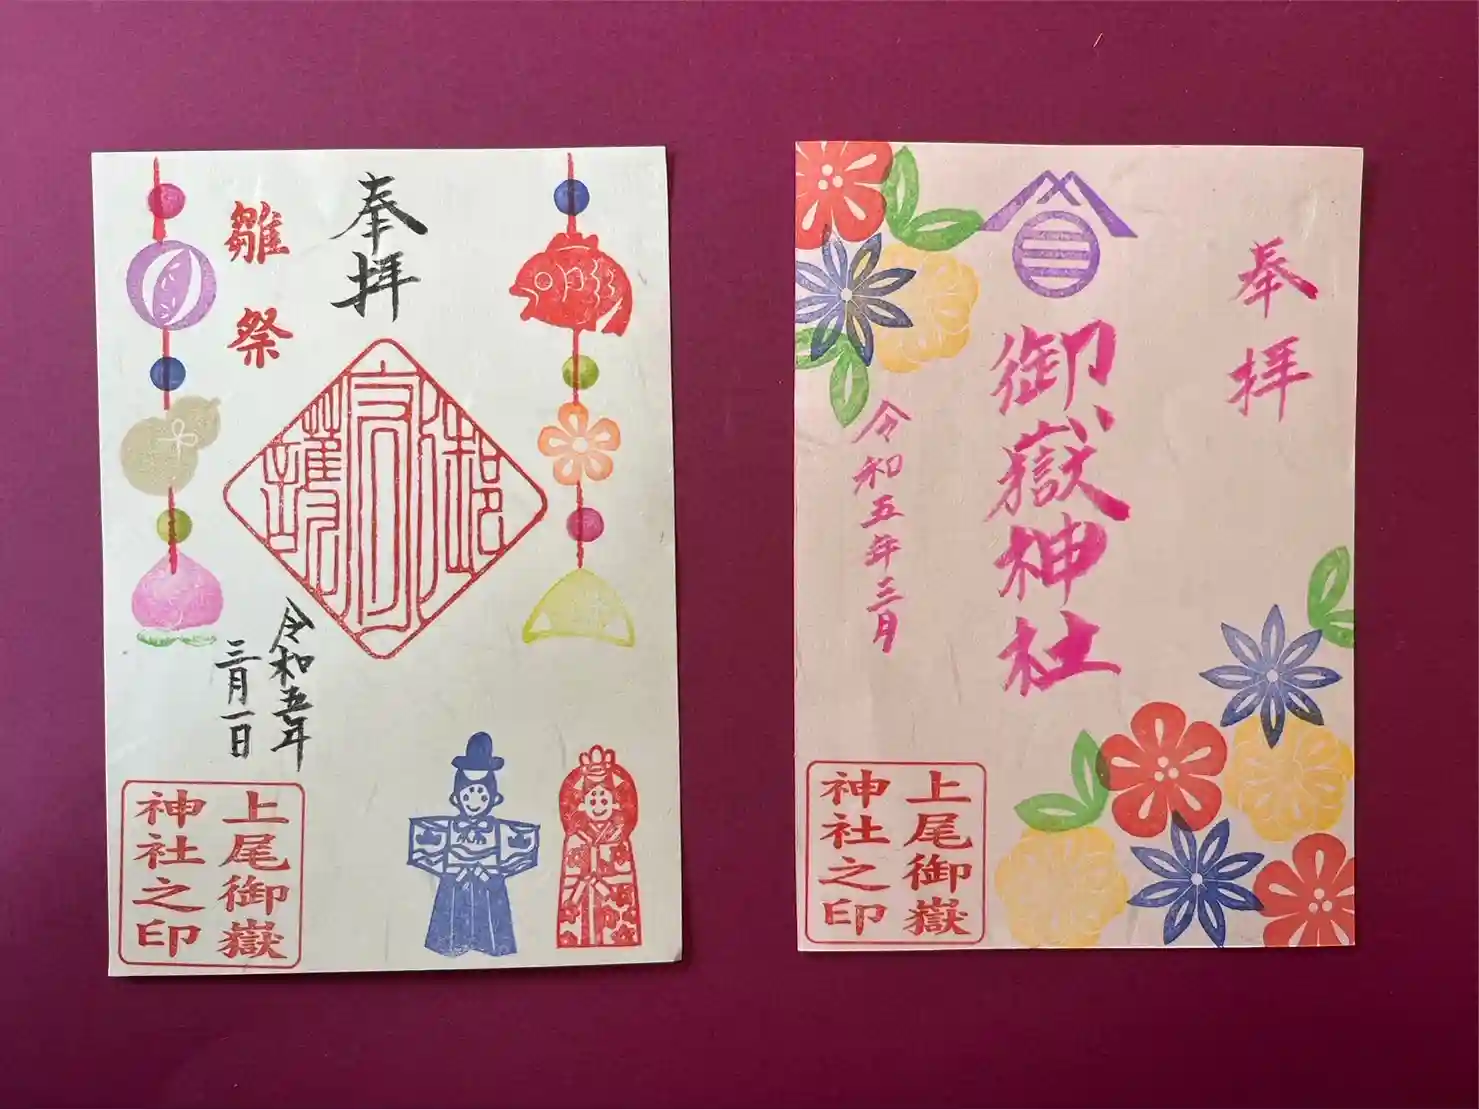 奉拝
雛祭
御守護
令和五年
三月一日
上尾御嶽
神社之印
奉拝
三
御嶽神社
令和五年三月
上尾御嶽
神社之印